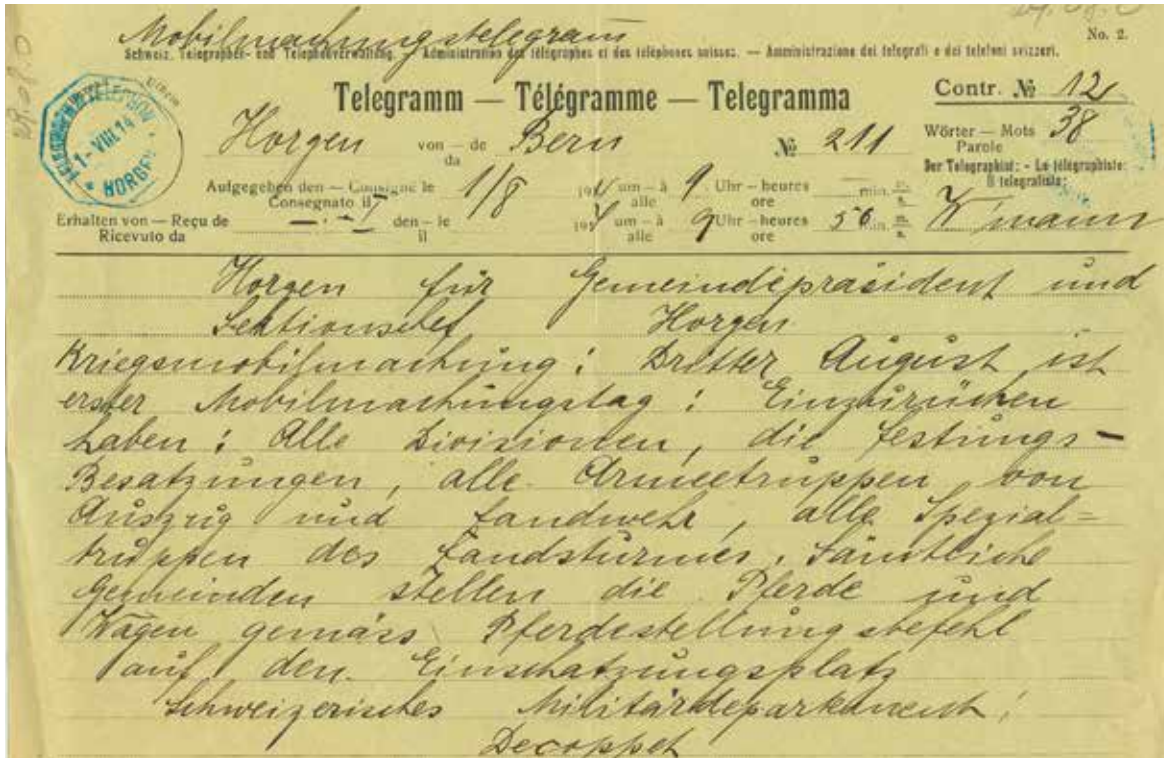 Mobilmachungstelegram
No. 2.
Schweiz. Telegraphen- und Telephonverwaltung. — Administration des télégraphes et des téléphones suisses. — Amministrazione dei telegrafi e dei telefoni svizzeri.
Telegramm — Télégramme — Telegramma
Contr. № 12
Horgen von — de Bern № 211
da
Wörter — Mots 38
Parole
Der Telegraphist: - Le télégraphiste:
Il telegrafista:
Aufgegeben den — Consigné le 1/8 1914 um — à 9 Uhr — heures min.
Consegnato il alle ore
Erhalten von — Reçu de den — le 1914 um — à 9 Uhr — heures 56 min. m/s.
Ricevuto da il alle ore
W'mann
1 - VIII. 14
HORGEN
Horgen für Gemeindepräsident und
Sektionschef Horgen
Kriegsmobilmachung: Dritter August ist
erster Mobilmachungstag: Einzurücken
haben: Alle Divisionen, die Festungs-
Besatzungen, alle Armeetruppen von
Auszug und Landwehr, alle Spezial=
truppen des Landsturmes. Sämtliche
Gemeinden stellen die Pferde und
Wagen gemäss Pferdestellungsbefehl
auf den Einschatzungsplatz
Schweizerisches Militärdepartement,
Decoppet